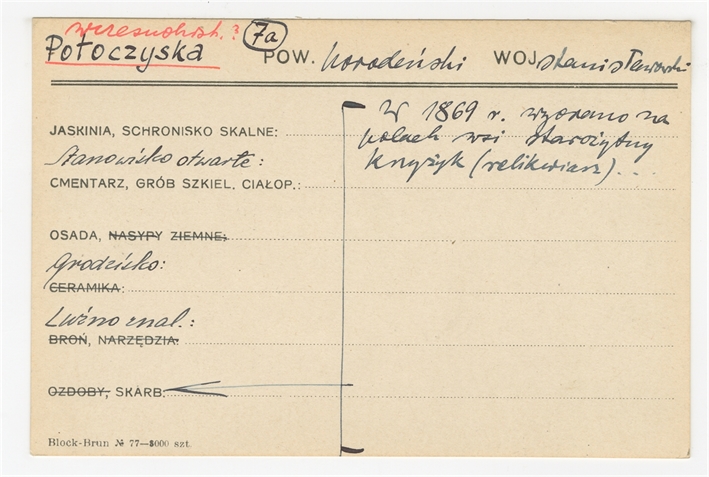 wczesnohist.? 7a
Potoczyska POW. horodeński WOJ. stanisławowski
W 1869 r. wyorano na
polach wsi starożytny
krzyżyk (relikwiarz)...
JASKINIA, SCHRONISKO SKALNE:
Stanowisko otwarte:
CMENTARZ, GRÓB SZKIEL. CIAŁOP.:
OSADA, NASYPY ZIEMNE;
Grodzisko:
CERAMIKA:
Luźno znal.:
BROŃ, NARZĘDZIA:
OZDOBY, SKARB:
Block-Brun № 77—3000 szt.